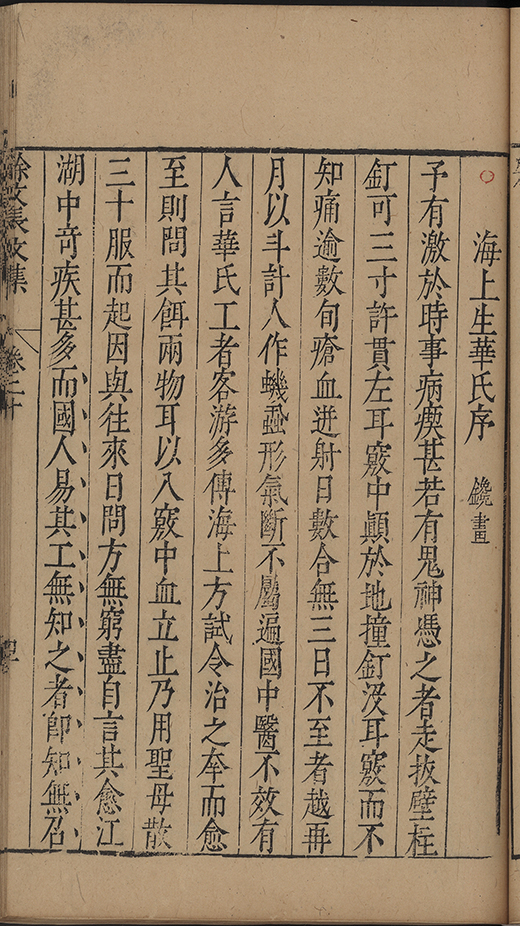 海上生華氏序 鑱畫
予有激於時事病瘈甚若有鬼神憑之者走拔壁柱
釘可三寸許貫左耳竅中顛於地撞釘沒耳竅而不
知痛逾數旬瘡血迸射日數合無三日不至者越再
月以斗計人作蟣蝨形氣斷不屬遍國中醫不效有
人言華氏工者客游多傳海上方試令治之卒而愈
至則問其餌兩物耳以入竅中血立止乃用聖母散
三十服而起因與往來日問方無窮盡自言其愈江
湖中竒疾甚多而國人易其工無知之者卽知無召
徐文長文集 卷二十